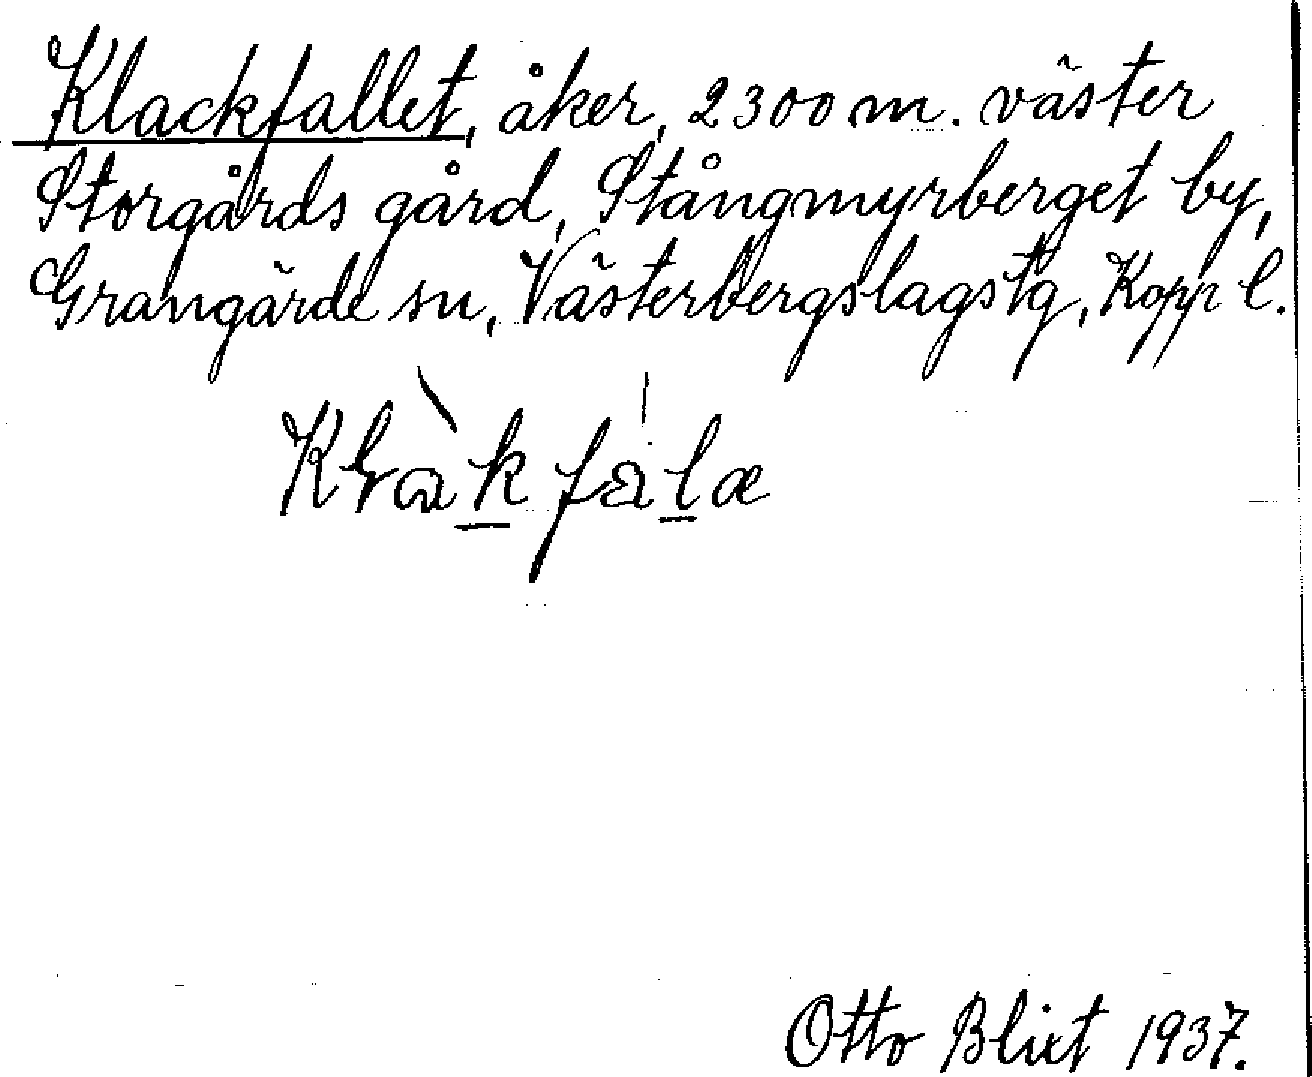 Klackfallet, åker, 2300 m. väster
Storgårds gård, Stångmyrberget by,
Grangärde sn, Västerbergslagstg, Kopp l.
Otto Blixt 1937.